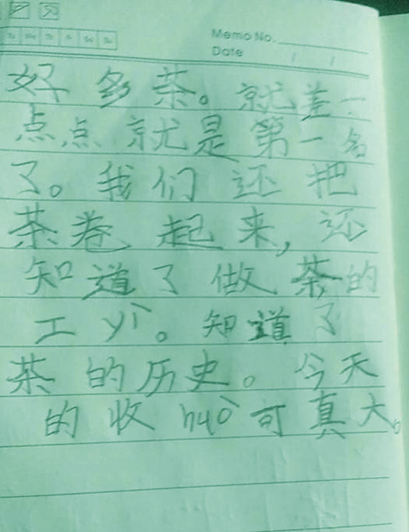 Memo No.
Date / /
好多茶。就差一
点点就是第一名
了。我们还把
茶卷起来,还
知道了做茶的
工yì。知道了
茶的历史。今天
的收huò可真大。